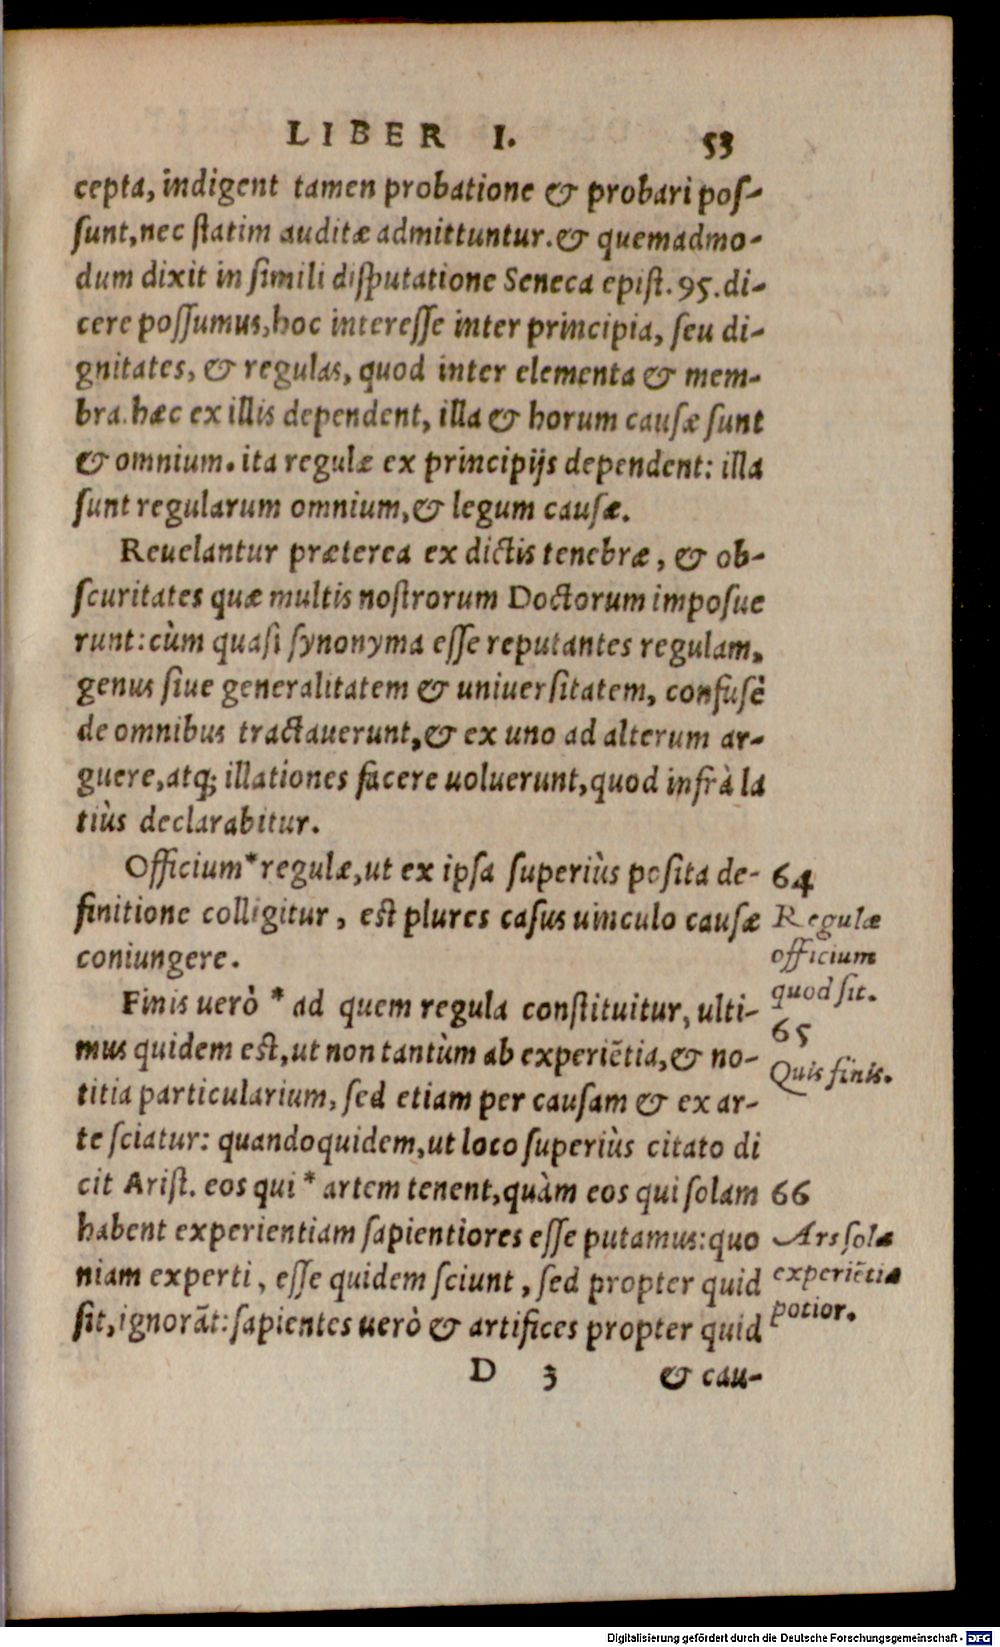 LIBER I. 53
cepta, indigent tamen probatione & probari pos-
sunt, nec statim auditæ admittuntur. & quemadmo-
dum dixit in simili disputatione Seneca epist. 95. di-
cere possumus, hoc interesse inter principia, seu di-
gnitates, & regulas, quod inter elementa & mem-
bra. hæc ex illis dependent, illa & horum causæ sunt
& omnium. ita regulæ ex principijs dependent: illa
sunt regularum omnium, & legum causæ.
Reuelantur præterea ex dictis tenebræ, & ob-
scuritates quæ multis nostrorum Doctorum imposue
runt: cùm quasi synonyma esse reputantes regulam,
genus siue generalitatem & uniuersitatem, confusè
de omnibus tractauerunt, & ex uno ad alterum ar-
guere, atq; illationes facere uoluerunt, quod infrà la
tiùs declarabitur.
Officium* regulæ, ut ex ipsa superiùs posita de-
finitione colligitur, est plures casus uinculo causæ
coniungere.
64
Regulæ
officium
quod sit.
Finis uerò * ad quem regula constituitur, ulti-
mus quidem est, ut non tantùm ab experiētia, & no-
titia particularium, sed etiam per causam & ex ar-
te sciatur: quandoquidem, ut loco superiùs citato di
cit Arist. eos qui * artem tenent, quàm eos qui solam
habent experientiam sapientiores esse putamus: quo
niam experti, esse quidem sciunt, sed propter quid
sit, ignorāt: sapientes uerò & artifices propter quid
65
Quis finis.
66
Ars sola
experiētia
potior.
D 3 & cau-
Digitalisierung gefördert durch die Deutsche Forschungsgemeinschaft - DFG